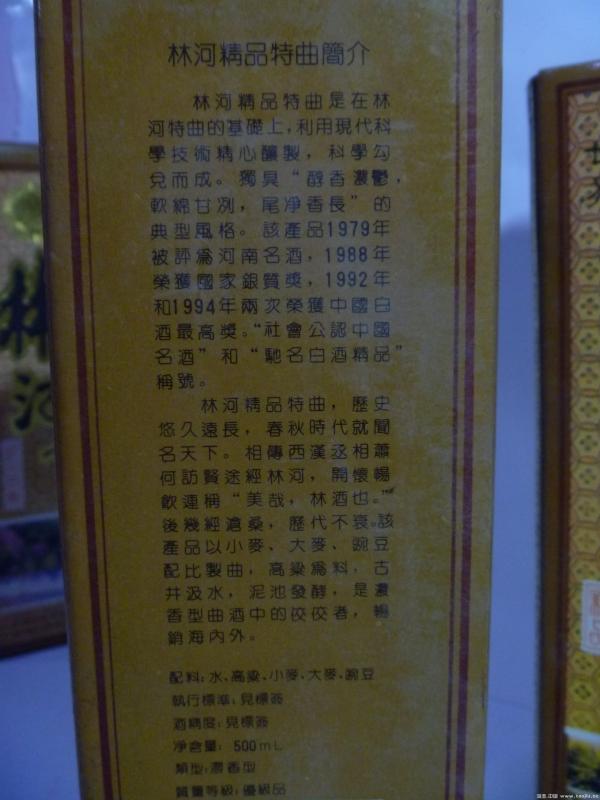 林河精品特曲簡介
林河精品特曲是在林
河特曲的基礎上,利用現代科
學技術精心釀製，科學勾
兌而成。獨具“醇香濃鬱，
軟綿甘冽，尾凈香長”的
典型風格。該產品1979年
被評爲河南名酒，1988年
榮獲國家銀質獎，1992年
和1994年兩次榮獲中國白
酒最高獎。“社會公認中國
名酒”和“馳名白酒精品”
稱號。
林河精品特曲，歷史
悠久遠長，春秋時代就聞
名天下。相傳西漢丞相蕭
何訪賢途經林河，開懷暢
飲連稱“美哉，林酒也。”
後幾經滄桑，歷代不衰。該
產品以小麥、大麥、豌豆
配比製曲，高粱爲料，古
井汲水，泥池發酵，是濃
香型曲酒中的佼佼者，暢
銷海內外。
配料:水、高粱、小麥、大麥、豌豆
執行標準:見標簽
酒精度:見標簽
凈含量: 500mL
類型:濃香型
質量等級:優級品
林
河